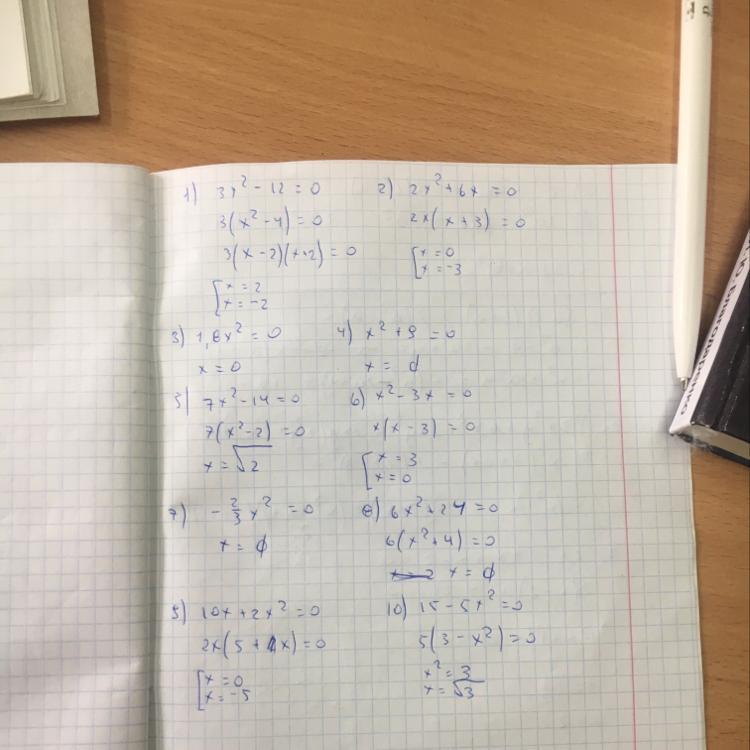 1) 3x² - 12 = 0
3(x² - 4) = 0
3(x - 2)(x + 2) = 0
[x = 2
x = -2
2) 2x² + 6x = 0
2x(x + 3) = 0
[x = 0
x = -3
3) 1,8x² = 0
x = 0
4) x² + 9 = 0
x = ϕ
5) 7x² - 14 = 0
7(x² - 2) = 0
x = √2
6) x² - 3x = 0
x(x - 3) = 0
[x = 3
x = 0
7) - 2/3 x² = 0
x = ϕ
8) 6x² + 24 = 0
6(x² + 4) = 0
x = ϕ
9) 10x + 2x² = 0
2x(5 + x) = 0
[x = 0
x = -5
10) 15 - 5x² = 0
5(3 - x²) = 0
x² = 3
x = √3